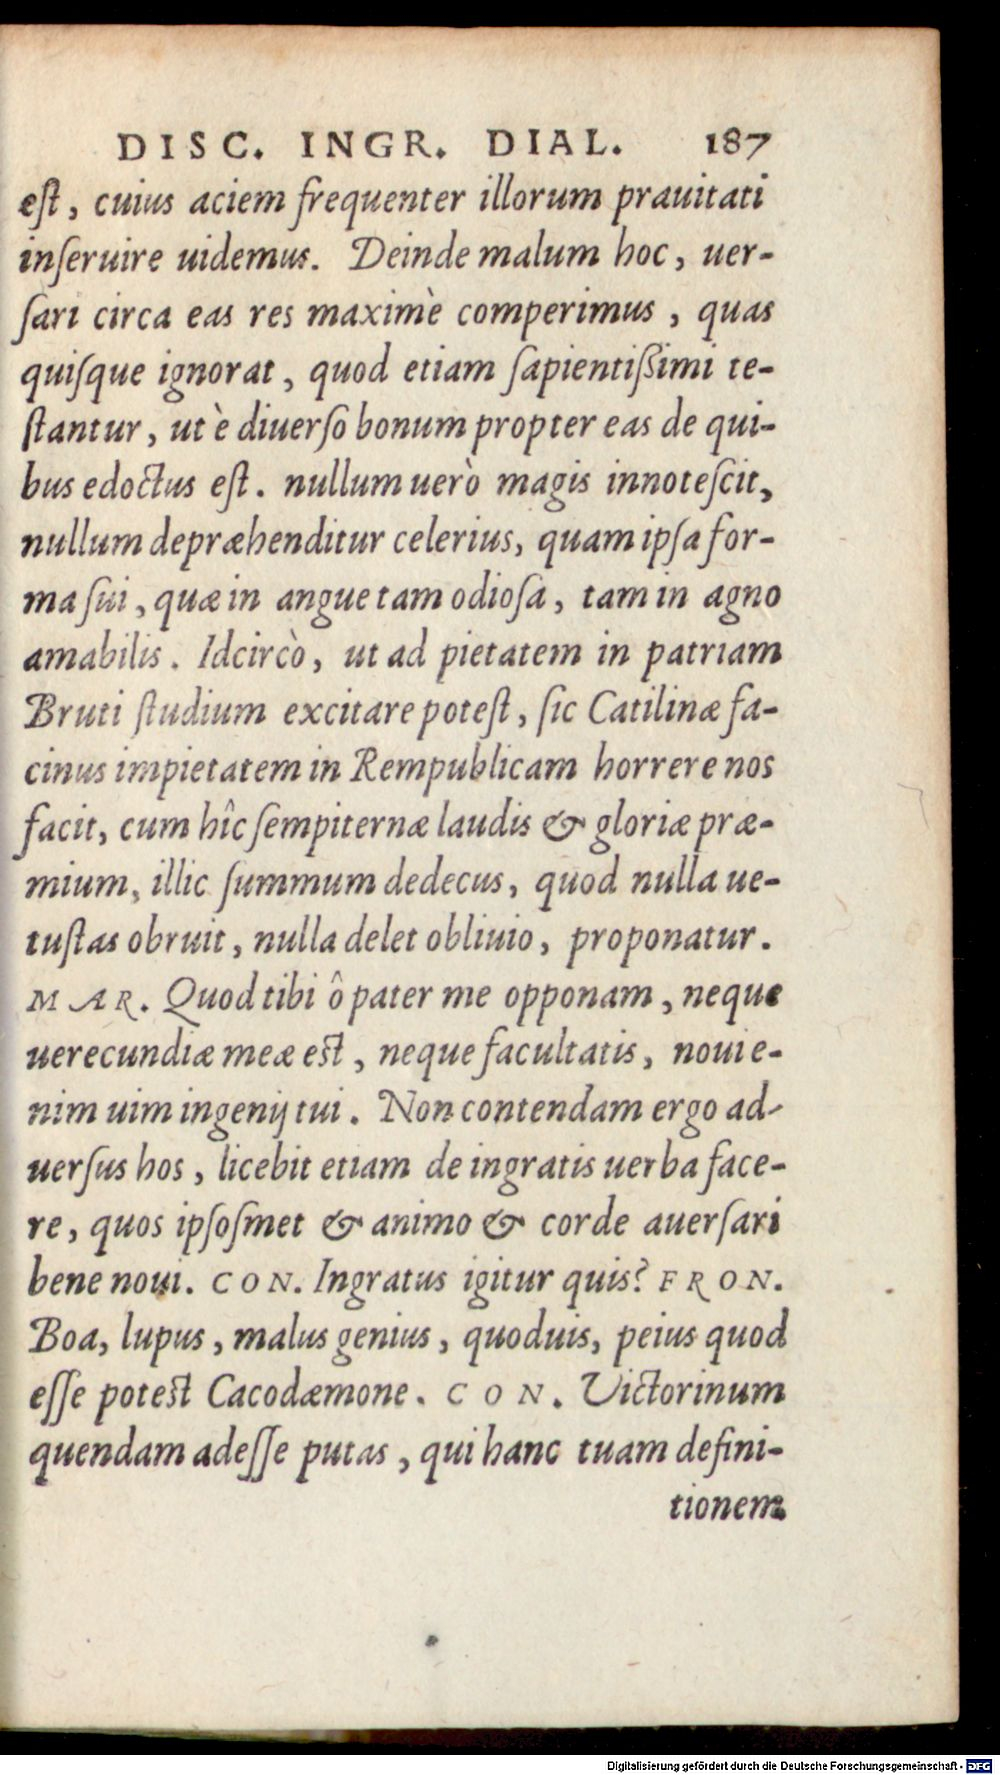 DISC. INGR. DIAL. 187
est, cuius aciem frequenter illorum prauitati
inseruire uidemus. Deinde malum hoc, uer-
sari circa eas res maximè comperimus, quas
quisque ignorat, quod etiam sapientißimi te-
stantur, ut è diuerso bonum propter eas de qui-
bus edoctus est. nullum uerò magis innotescit,
nullum depræhenditur celerius, quam ipsa for-
ma sui, quæ in angue tam odiosa, tam in agno
amabilis. Idcircò, ut ad pietatem in patriam
Bruti studium excitare potest, sic Catilinæ fa-
cinus impietatem in Rempublicam horrere nos
facit, cum hîc sempiternæ laudis & gloriæ præ-
mium, illic summum dedecus, quod nulla ue-
tustas obruit, nulla delet obliuio, proponatur.
MAR. Quod tibi ô pater me opponam, neque
uerecundiæ meæ est, neque facultatis, noui e-
nim uim ingenij tui. Non contendam ergo ad-
uersus hos, licebit etiam de ingratis uerba face-
re, quos ipsosmet & animo & corde auersari
bene noui. CON. Ingratus igitur quis? FRON.
Boa, lupus, malus genius, quoduis, peius quod
esse potest Cacodæmone. CON. Victorinum
quendam adesse putas, qui hanc tuam defini-
tionem
Digitalisierung gefördert durch die Deutsche Forschungsgemeinschaft - DFG